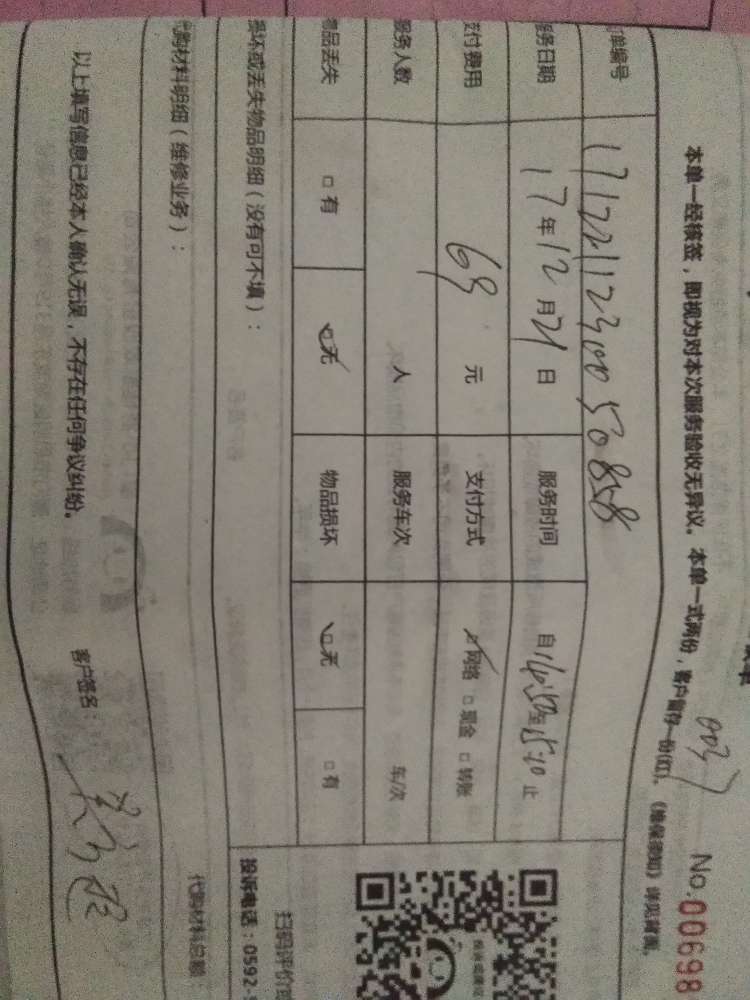 本单一经核签，即视为对本次服务验收无异议。本单一式两份，客户留存一份(红)。《维保须知》详见背面。
No.00698
0037
单编号 17122112300 50858
服务日期 17年12月21日 服务时间 自14:50至15:10止
支付费用 69 元 支付方式 网络 □现金 □转账
服务人数 人 服务车次 车/次
物品丢失 □有 □无 物品损坏 □无 □有
损坏或丢失物品明细（没有可不填）：
扫码评价
投诉电话：0592-
代购材料明细（维修业务）：
代购材料总额：
以上填写信息已经本人确认无误，不存在任何争议纠纷。
客户签名：